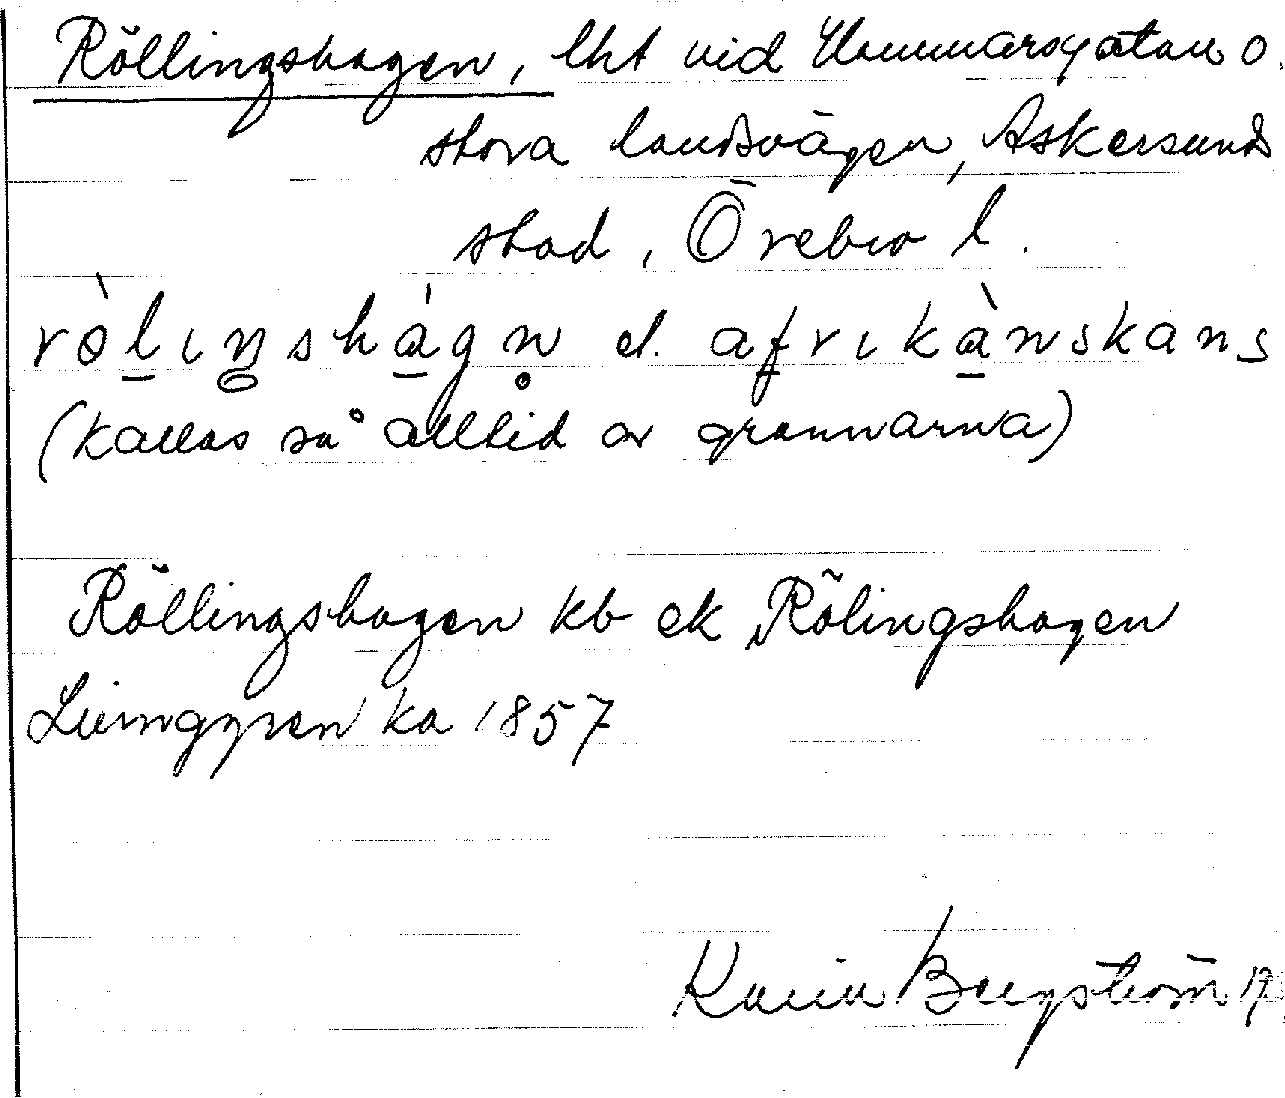 Röllingshagen, lht vid Hammarsgatan o.
stora landsvägen, Askersund
stad, Örebro l.
ròlıŋshágn̥ el. afrıkànskans
(kallas så alltid av grannarna)
Röllingshagen kb ek Rölingshagen
ka 1857
Karin Bergström